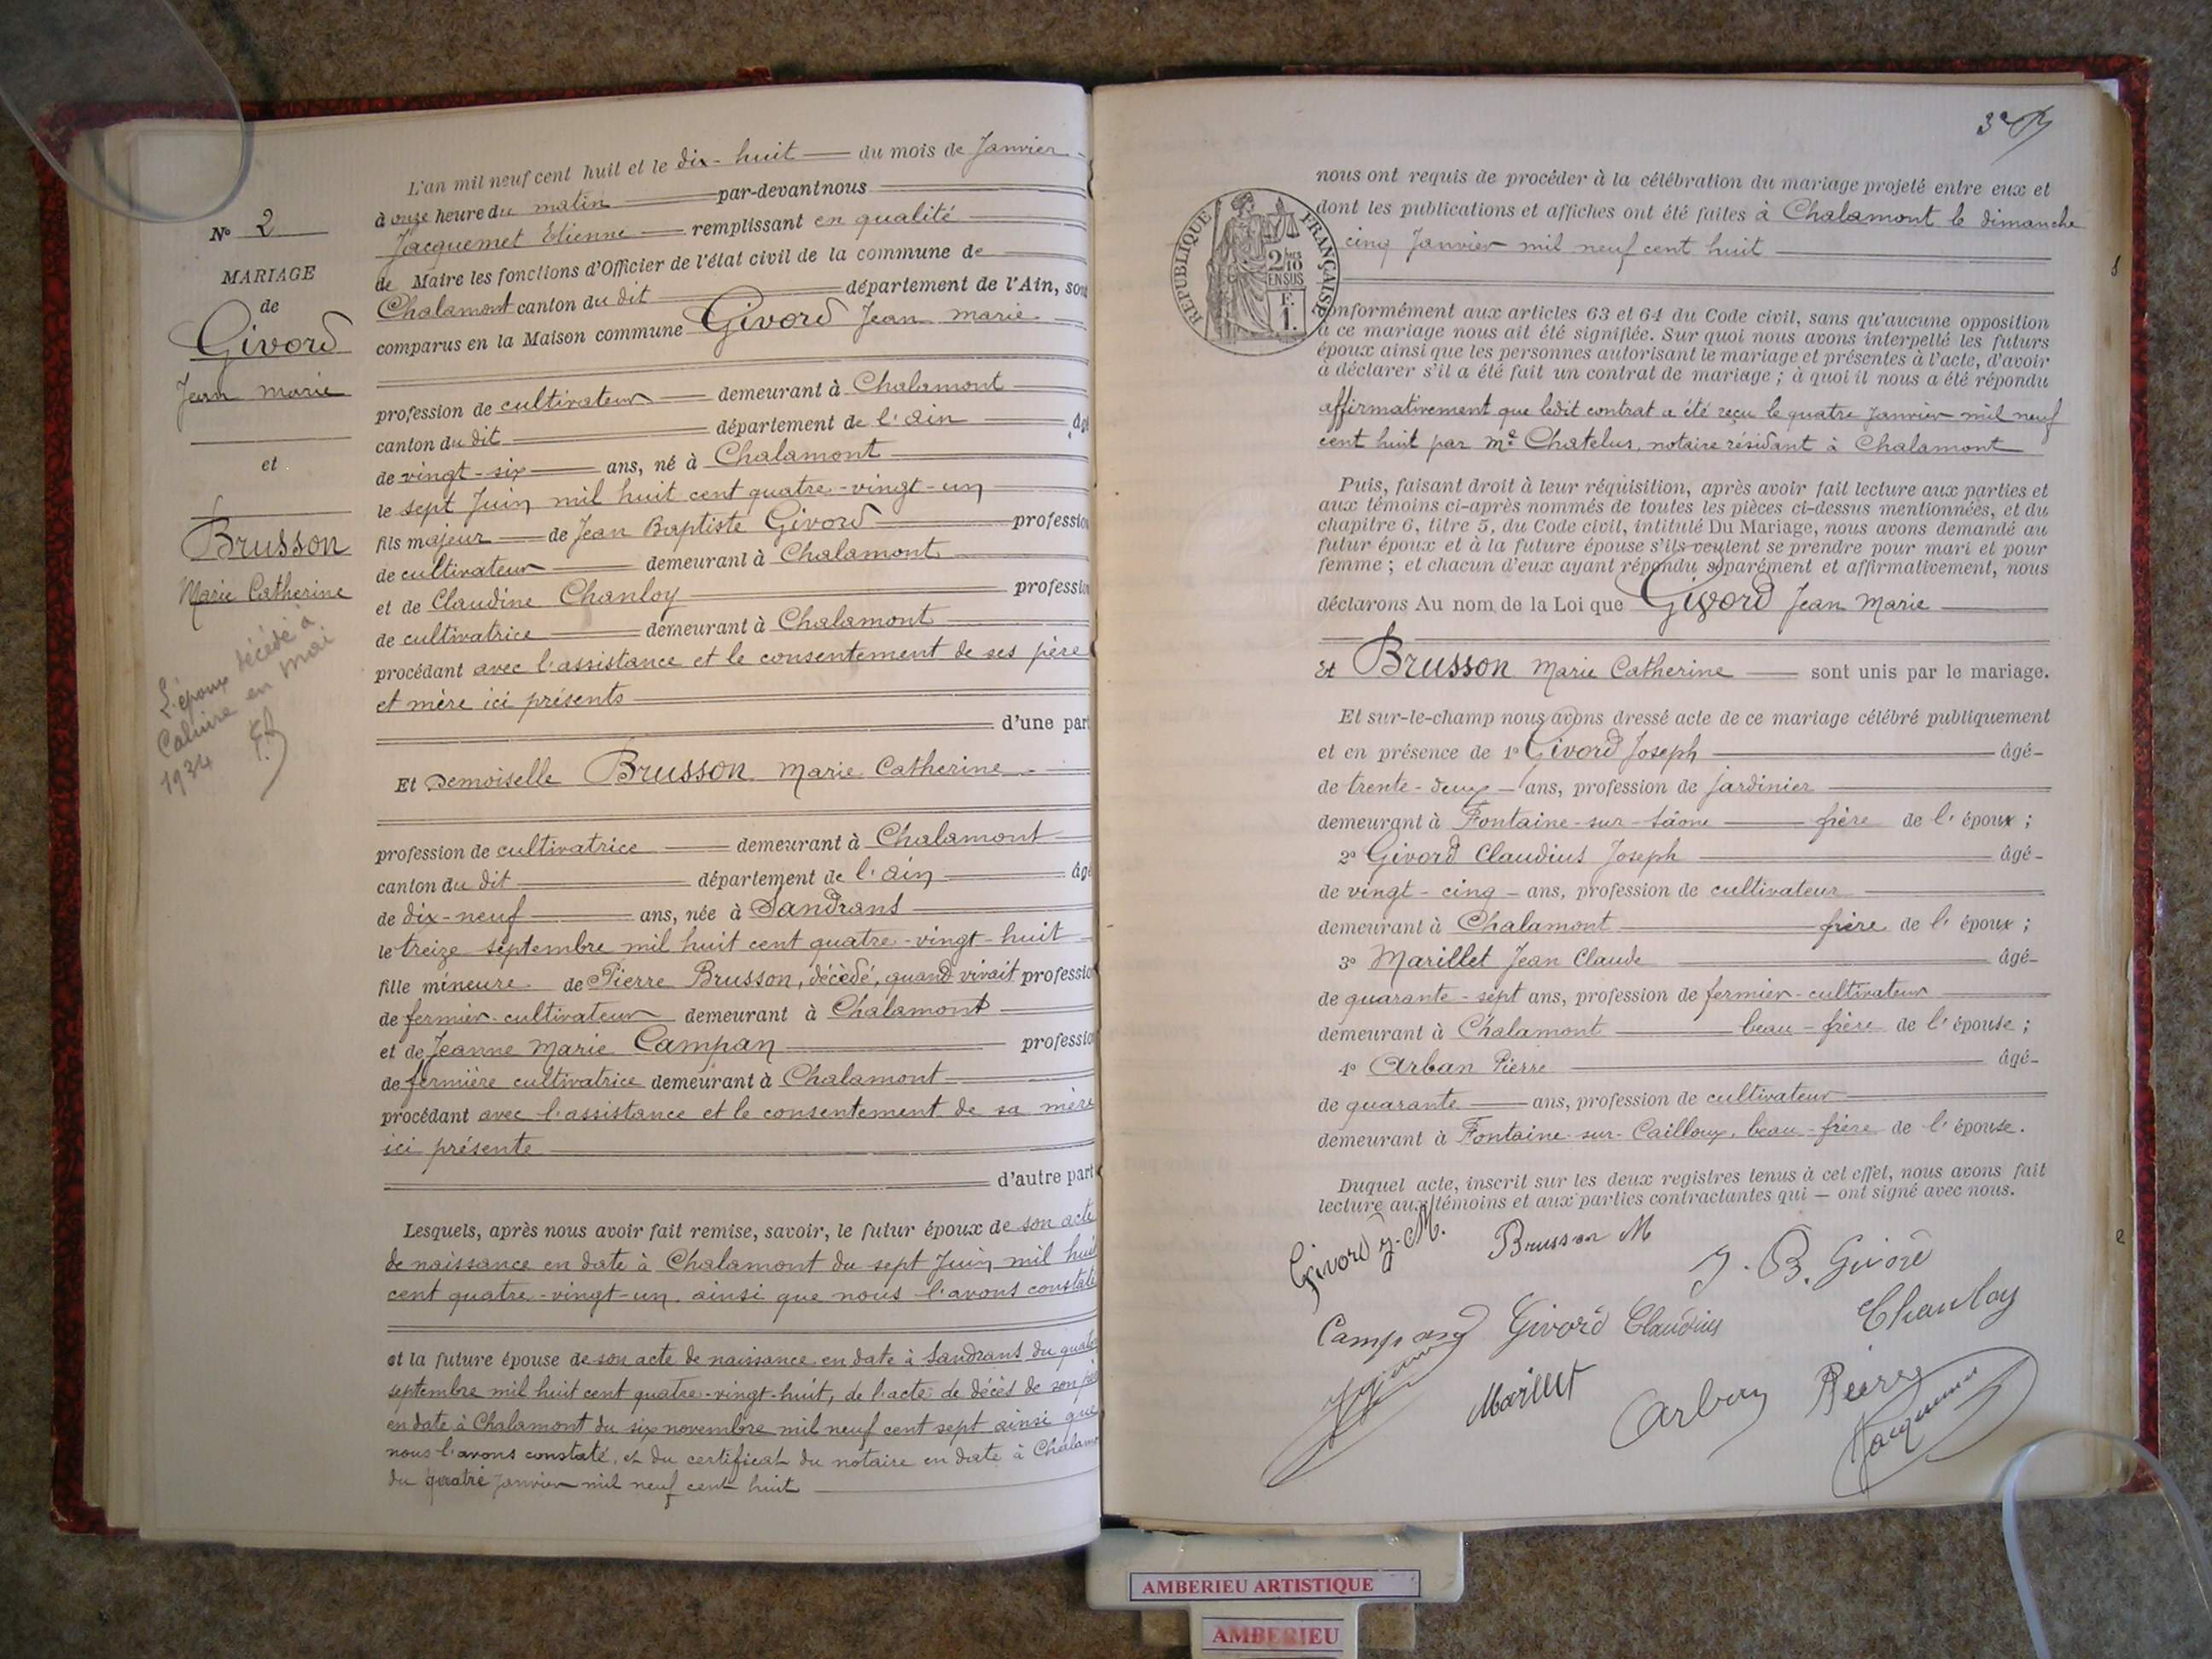 N° 2
MARIAGE
de
Givord
Jean Marie
et
Brusson
Marie Catherine
L'époux décédé à
Caluire en mai
1934
L'an mil neuf cent huit et le dix-huit du mois de Janvier
à onze heure du matin par-devant nous
Jacquemet Etienne remplissant en qualité
de Maire les fonctions d'Officier de l'état civil de la commune de
Chalamont canton du dit département de l'Ain, sont
comparus en la Maison commune Givord Jean Marie
profession de cultivateur demeurant à Chalamont
canton du dit département de l'ain âgé
de vingt-six ans, né à Chalamont
le sept Juin mil huit cent quatre-vingt-un
fils majeur de Jean Baptiste Givord profession
de cultivateur demeurant à Chalamont
et de Claudine Chanloy profession
de cultivatrice demeurant à Chalamont
procédant avec l'assistance et le consentement de ses père
et mère ici présents
d'une part
Et Demoiselle Brusson Marie Catherine
profession de cultivatrice demeurant à Chalamont
canton du dit département de l'ain âgé
de dix-neuf ans, née à Sandrans
le treize septembre mil huit cent quatre-vingt-huit
fille mineure de Pierre Brusson, décédé, quand vivait profession
de fermier-cultivateur demeurant à Chalamont
et de Jeanne Marie Campan profession
de fermière cultivatrice demeurant à Chalamont
procédant avec l'assistance et le consentement de sa mère
ici présente
d'autre part
Lesquels, après nous avoir fait remise, savoir, le futur époux de son acte
de naissance en date à Chalamont du sept Juin mil huit
cent quatre-vingt-un ainsi que nous l'avons constaté
et la future épouse de son acte de naissance en date à Sandrans du
septembre mil huit cent quatre-vingt-huit, de l'acte de décès de son père
en date à Chalamont du six novembre mil neuf cent sept ainsi que
nous l'avons constaté, et du certificat du notaire en date à Chalamont
du quatre janvier mil neuf cent huit
3e
RÉPUBLIQUE FRANÇAISE
2/10 EN SUS
F. 1.
nous ont requis de procéder à la célébration du mariage projeté entre eux et
dont les publications et affiches ont été faites à Chalamont le dimanche
cinq Janvier mil neuf cent huit
conformément aux articles 63 et 64 du Code civil, sans qu'aucune opposition
à ce mariage nous ait été signifiée. Sur quoi nous avons interpellé les futurs
époux ainsi que les personnes autorisant le mariage et présentes à l'acte, d'avoir
à déclarer s'il a été fait un contrat de mariage ; à quoi il nous a été répondu
affirmativement que ledit contrat a été reçu le quatre Janvier mil neuf
cent huit par Me Chatelus, notaire résidant à Chalamont
Puis, faisant droit à leur réquisition, après avoir fait lecture aux parties et
aux témoins ci-après nommés de toutes les pièces ci-dessus mentionnées, et du
chapitre 6, titre 5, du Code civil, intitulé Du Mariage, nous avons demandé au
futur époux et à la future épouse s'ils veulent se prendre pour mari et pour
femme ; et chacun d'eux ayant répondu séparément et affirmativement, nous
déclarons Au nom de la Loi que Givord Jean Marie
Et Brusson Marie Catherine sont unis par le mariage.
Et sur-le-champ nous avons dressé acte de ce mariage célébré publiquement
et en présence de 1° Givord Joseph âgé
de trente-deux ans, profession de jardinier
demeurant à Fontaine-sur-Saône frère de l'époux ;
2° Givord Claudius Joseph âgé
de vingt-cinq ans, profession de cultivateur
demeurant à Chalamont frère de l'époux ;
3° Marillet Jean Claude âgé
de quarante-sept ans, profession de fermier-cultivateur
demeurant à Chalamont beau-frère de l'épouse ;
4° Arban Pierre âgé
de quarante ans, profession de cultivateur
demeurant à Fontaine-sur-Cailloux, beau-frère de l'épouse.
Duquel acte, inscrit sur les deux registres tenus à cet effet, nous avons fait
lecture aux témoins et aux parties contractantes qui — ont signé avec nous.
Givord J. M. Brusson M J. B. Givord
Campan Givord Claudius Chanloy
Marillet Arban Pierre
Jacquemet
AMBERIEU ARTISTIQUE
AMBERIEU